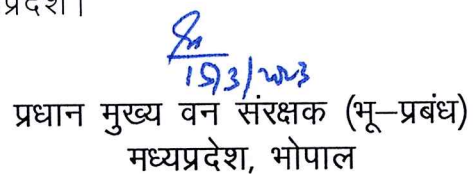 प्रदेश।
15/3/2023
प्रधान मुख्य वन संरक्षक (भू–प्रबंध)
मध्यप्रदेश, भोपाल